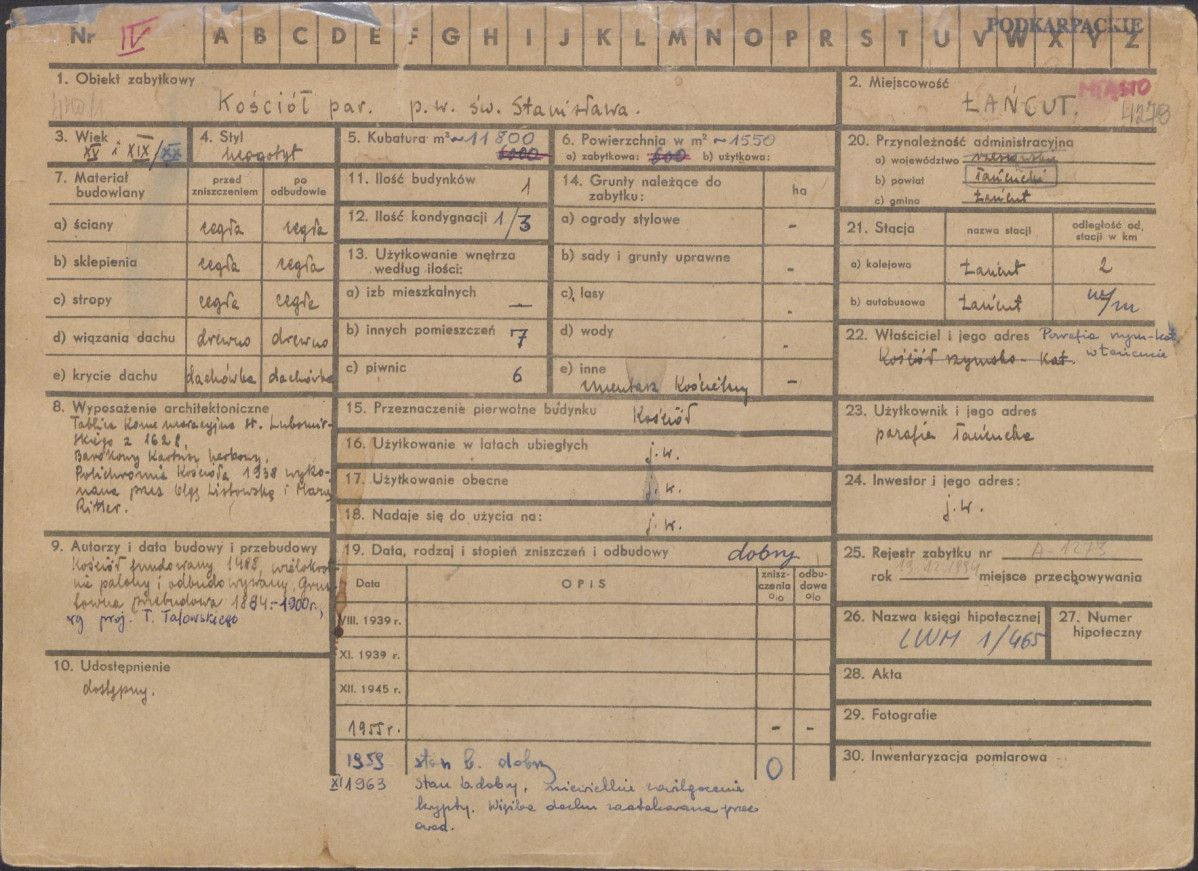 PODKARPACKIE
Nr IV A B C D E F G H I J K L M N O P R S T U V W X Y Z
1. Obiekt zabytkowy
Kościół par. p.w. św. Stanisława.
2. Miejscowość
MIASTO
ŁAŃCUT.
3. Wiek
XV i XIX/XX
4. Styl
neogotyk
5. Kubatura m³ ~11800
6000
6. Powierzchnia w m² ~1550
a) zabytkowa: 600 b) użytkowa:
20. Przynależność administracyjna
a) województwo rzeszowskie
b) powiat łańcucki
c) gmina Łańcut
7. Materiał budowlany
przed zniszczeniem
po odbudowie
a) ściany cegła cegła
b) sklepienia cegła cegła
c) stropy cegła cegła
d) wiązania dachu drewno drewno
e) krycie dachu dachówka dachówka
11. Ilość budynków 1
12. Ilość kondygnacji 1/3
13. Użytkowanie wnętrza
według ilości:
a) izb mieszkalnych —
b) innych pomieszczeń 7
c) piwnic 6
14. Grunty należące do
zabytku:
ha
a) ogrody stylowe -
b) sady i grunty uprawne -
c) lasy -
d) wody -
e) inne
cmentarz kościelny -
21. Stacja
nazwa stacji
odległość od,
stacji w km
a) kolejowa Łańcut 2
b) autobusowa Łańcut w/m
22. Właściciel i jego adres Parafia rzym-kat.
w Łańcucie
Kościół rzymsko-kat.
8. Wyposażenie architektoniczne
Tablica komemoracyjna St. Lubomir-
skiego z 1628,
Barokowy kartusz herbowy,
Polichromia kościoła 1938 wyko-
nana przez Olgę Listowską i Marię
Ritter.
15. Przeznaczenie pierwotne budynku Kościół
16. Użytkowanie w latach ubiegłych j.w.
17. Użytkowanie obecne j.w.
18. Nadaje się do użycia na: j.w.
23. Użytkownik i jego adres
parafia łańcucka
24. Inwestor i jego adres:
j.w.
9. Autorzy i data budowy i przebudowy
Kościół fundowany 1488, wielokrot-
nie palony i odbudowywany. Grun-
towna przebudowa 1894-1900r.,
wg proj. T. Talowskiego
10. Udostępnienie
dostępny.
19. Data, rodzaj i stopień zniszczeń i odbudowy dobry
Data
OPIS
znisz-
czenia
%
odbu-
dowa
%
VIII. 1939 r.
XI. 1939 r.
XII. 1945 r.
1955r. - -
1959 stan b. dobry 0
XI 1963 Stan b. dobry, niewielkie zawilgocenie
krypty. Więźba dachu zaatakowana przez
owad.
25. Rejestr zabytku nr A-1273
rok 19.12.1994 miejsce przechowywania
26. Nazwa księgi hipotecznej
LWH 1/465
27. Numer
hipoteczny
28. Akta
29. Fotografie
30. Inwentaryzacja pomiarowa